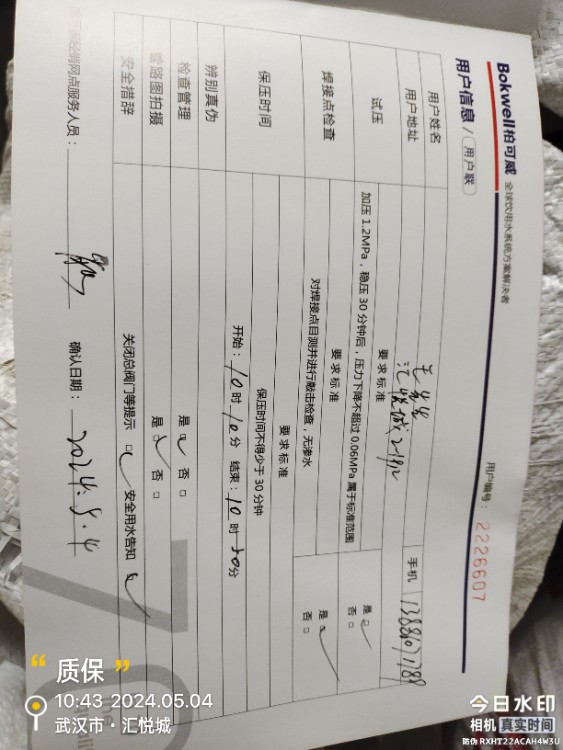 Bokwell柏可威 全球饮用水系统方案解决者
用户信息 / 用户联
用户编号: 2226607
用户姓名
手机
用户地址
试压
要求标准
加压 1.2MPa，稳压 30 分钟后，压力下降不超过 0.06MPa 属于标准范围
是 □
否 □
焊接点检查
要求标准
对焊接点目测并进行敲击检查，无渗水
是 □
否 □
保压时间
要求标准
保压时间不得少于 30 分钟
开始：10 时 10 分 结束：10 时 50 分
辨别真伪
检查管理
是 □ 否 □
管路图拍摄
是 □ 否 □
安全措辞
关闭总阀门等提示 □ 安全用水告知 □
经销网点服务人员：
确认日期：2024.5.4
“ 质保 ”
10:43 2024.05.04
武汉市·汇悦城
今日水印
相机 真实时间
防伪 RXHT22ACAH4W3U